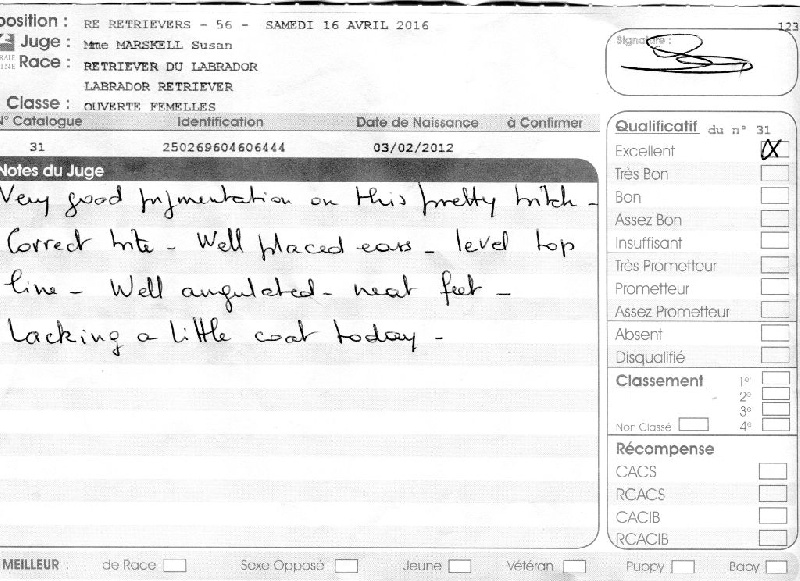 position : RE RETRIEVERS - 56 - SAMEDI 16 AVRIL 2016
123
Juge : Mme MARSKELL Susan
Race : RETRIEVER DU LABRADOR
LABRADOR RETRIEVER
Classe : OUVERTE FEMELLES
Signature :
N° Catalogue Identification Date de Naissance à Confirmer
31 250269604606444 03/02/2012
Notes du Juge
Very good pigmentation on this pretty bitch -
Correct bite - Well placed ears - level top
line - Well angulated - neat feet -
Lacking a little coat today -
Qualificatif du n° 31
Excellent X
Très Bon
Bon
Assez Bon
Insuffisant
Très Prometteur
Prometteur
Assez Prometteur
Absent
Disqualifié
Classement 1°
2°
3°
Non Classé 4°
Récompense
CACS
RCACS
CACIB
RCACIB
MEILLEUR : de Race Sexe Opposé Jeune Vétéran Puppy Baby